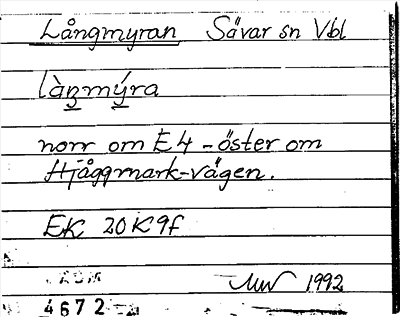 Långmyran Sävar sn Vbl
làŋmýra
norr om E4 - öster om
Hjåggmark-vägen.
EK 20K9f
1992
4672